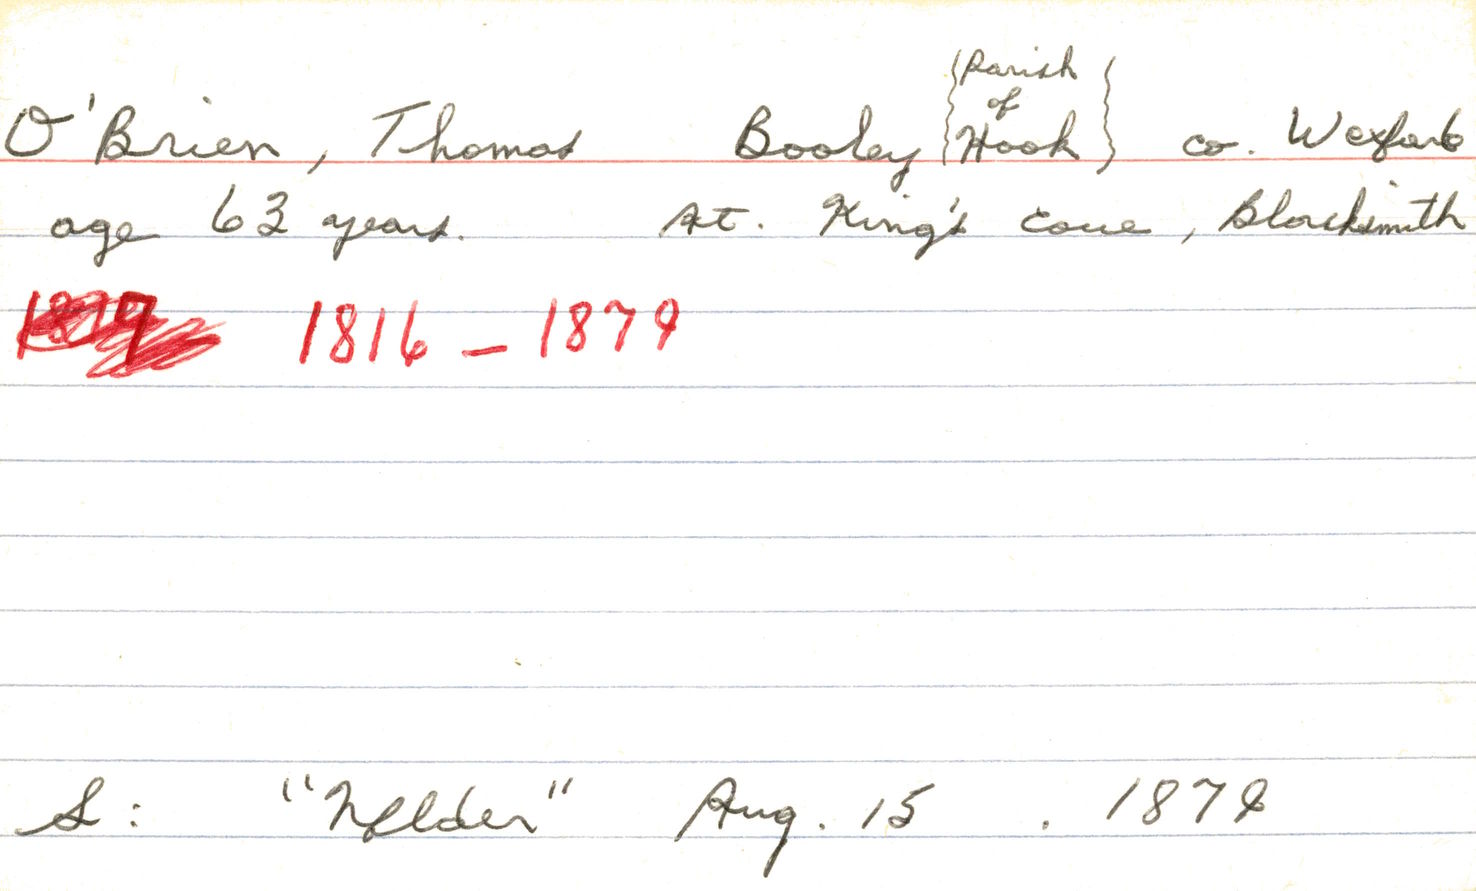 O'Brien, Thomas Booley {Parish of Hook} co. Wexford
age 63 years. At. King's Cove, Blacksmith
1816 - 1879
S: "Nflder" Aug. 15 . 1879